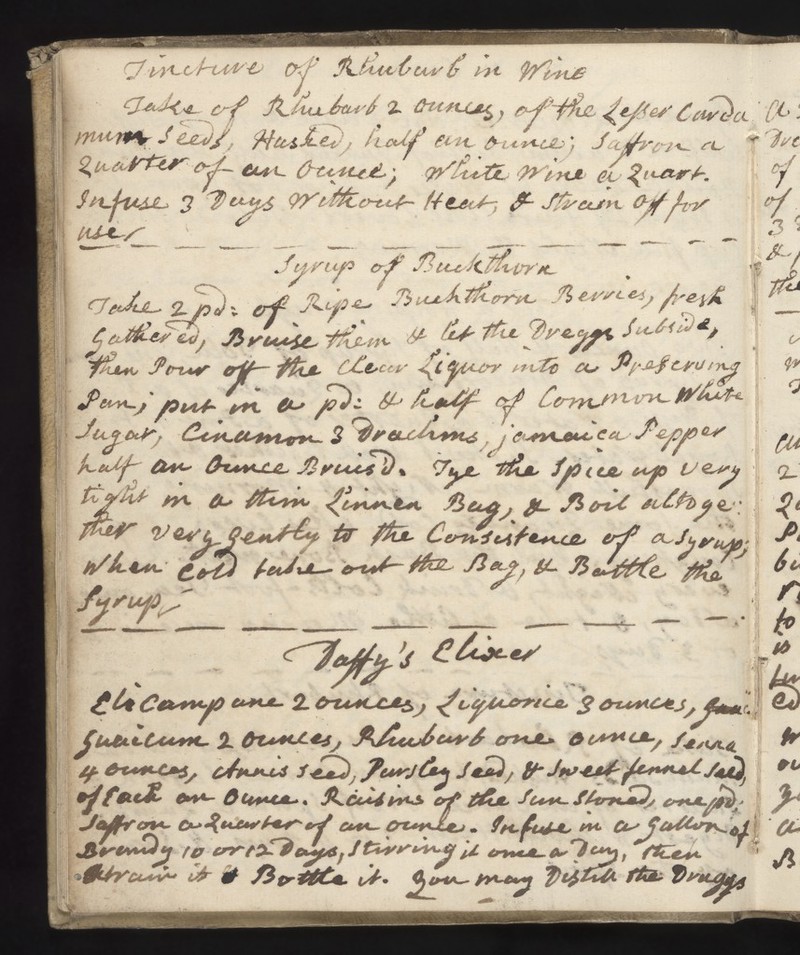 Tincture of Rhubarb in Wine
Take of Rhubarb 2 ounces, of the Lesser Carda
mum Seeds, Husked, half an ounce; Saffron a
Quarter of an Ounce; White Wine a Quart.
Infuse 3 Days Without Heat, & Strain off for
use
Syrup of Buckthorn
Take 2 pd: of Ripe Buckthorn Berries, fresh
Gathered, Bruise them & let the Dreggs Subside,
then Pour off the Clear Liquor into a Preserving
Pan; put in a pd: & half of Common White
Sugar, Cinamon 3 Drachms, jamaica Pepper
half an Ounce Bruis'd. Tye the Spice up very
tight in a thin Linnen Bag, & Boil altoge:
ther very gently to the Consistence of a Syrup;
When Cold take out the Bag, & Bottle the
Syrup
Daffy's Elixer
Elicampane 2 ounces, Liquorice 3 ounces,
Guaicum 2 ounces, Rhubarb one ounce, Senna
4 ounces, Annis seed, Parsley Seed, & Sweet fennel Seed,
of Each an Ounce. Raisins of the Sun Stoned, one pd:
Saffron a Quarter of an ounce. Infuse in a Gallon of
Brandy 10 or 12 Days, Stirring it once a Day, then
Strain it & Bottle it. You may Distill the Druggs